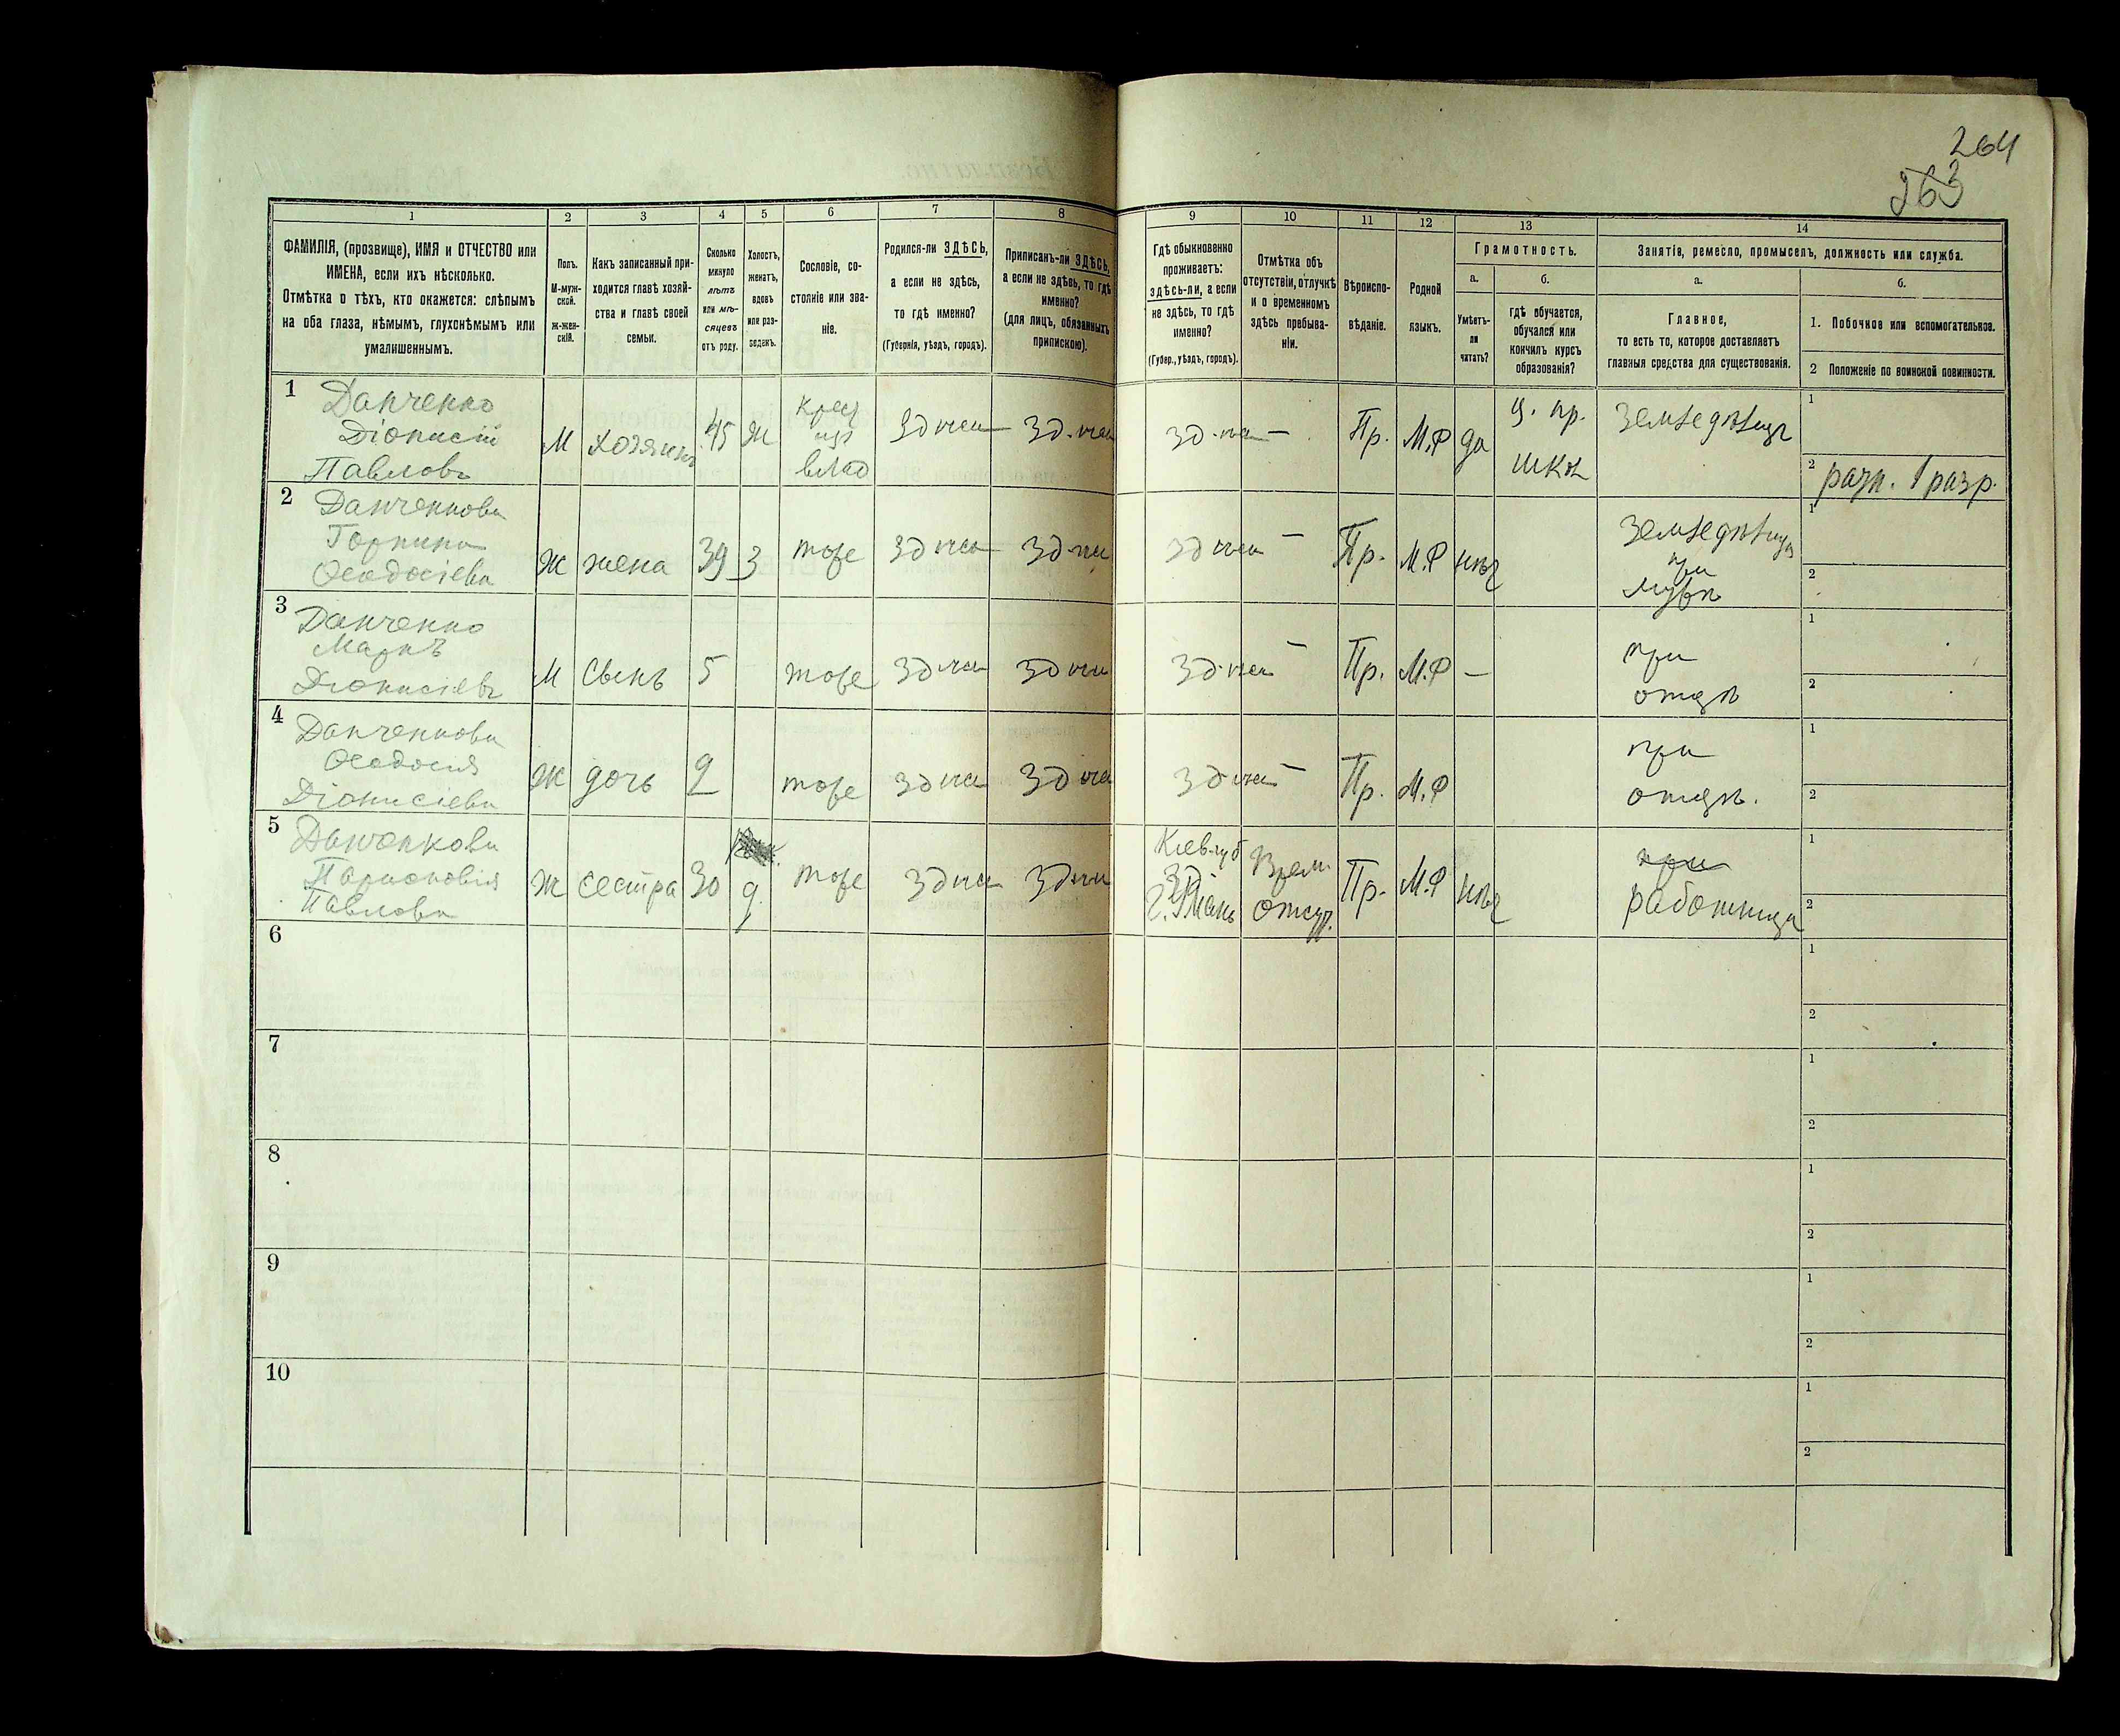 264
263
1
2
3
4
5
6
7
8
9
10
11
12
13
14
ФАМИЛІЯ, (прозвище), ИМЯ и ОТЧЕСТВО или
ИМЕНА, если ихъ нѣсколько.
Отмѣтка о тѣхъ, кто окажется: слѣпымъ
на оба глаза, нѣмымъ, глухонѣмымъ или
умалишеннымъ.
Полъ.
М-муж-
ской.
Ж-жен-
скій.
Какъ записанный при-
ходится главѣ хозяй-
ства и главѣ своей
семьи.
Сколько
минуло
лѣтъ
или мѣ-
сяцевъ
отъ роду.
Холостъ,
женатъ,
вдовъ
или раз-
веденъ.
Сословіе, со-
стояніе или зва-
ніе.
Родился-ли ЗДѢСЬ,
а если не здѣсь,
то гдѣ именно?
(Губернія, уѣздъ, городъ).
Приписанъ-ли ЗДѢСЬ,
а если не здѣсь, то гдѣ
именно?
(для лицъ, обязанныхъ
припискою).
Гдѣ обыкновенно
проживаетъ:
здѣсь-ли, а если
не здѣсь, то гдѣ
именно?
(Губер., уѣздъ, городъ).
Отмѣтка объ
отсутствіи, отлучкѣ
и о временномъ
здѣсь пребыва-
ніи.
Вѣроиспо-
вѣданіе.
Родной
языкъ.
Грамотность.
а.
Умѣетъ-
ли
читать?
б.
гдѣ обучается,
обучался или
кончилъ курсъ
образованія?
Занятія, ремесло, промыселъ, должность или служба.
а.
Главное,
то есть то, которое доставляетъ
главныя средства для существованія.
б.
1. Побочное или вспомогательное.
2 Положеніе по воинской повинности.
1
Данченко
Діонисій
Павловъ
М
хозяинъ
45
Ж
Крест
влад
Здѣсь
Здѣсь
Здѣсь
—
Пр.
М.Р
да
ц. пр.
шкл
Земледѣлецъ
1
2
разн. 1 разр.
2
Данченкова
Горпина
Ѳеодосіева
Ж
жена
39
З
тоже
Здѣсь
Здѣсь
Здѣсь
—
Пр.
М.Р
нѣт
Земледѣлица
при
мужѣ
1
2
3
Данченко
Маркъ
Діонисіевъ
М
Сынъ
5
тоже
Здѣсь
Здѣсь
Здѣсь
—
Пр.
М.Р
—
при
отцѣ
1
2
4
Данченкова
Ѳеодосия
Діонисіева
Ж
дочь
2
тоже
Здѣсь
Здѣсь
Здѣсь
—
Пр.
М.Р
при
отцѣ.
1
2
5
Данченкова
Павлова
Ж
сестра
30
д.
тоже
Здѣсь
Здѣсь
Кіев губ
г. Умань
Врем.
отсут.
Пр.
М.Р
нѣт
при
работница
1
2
6
1
2
7
1
2
8
1
2
9
1
2
10
1
2